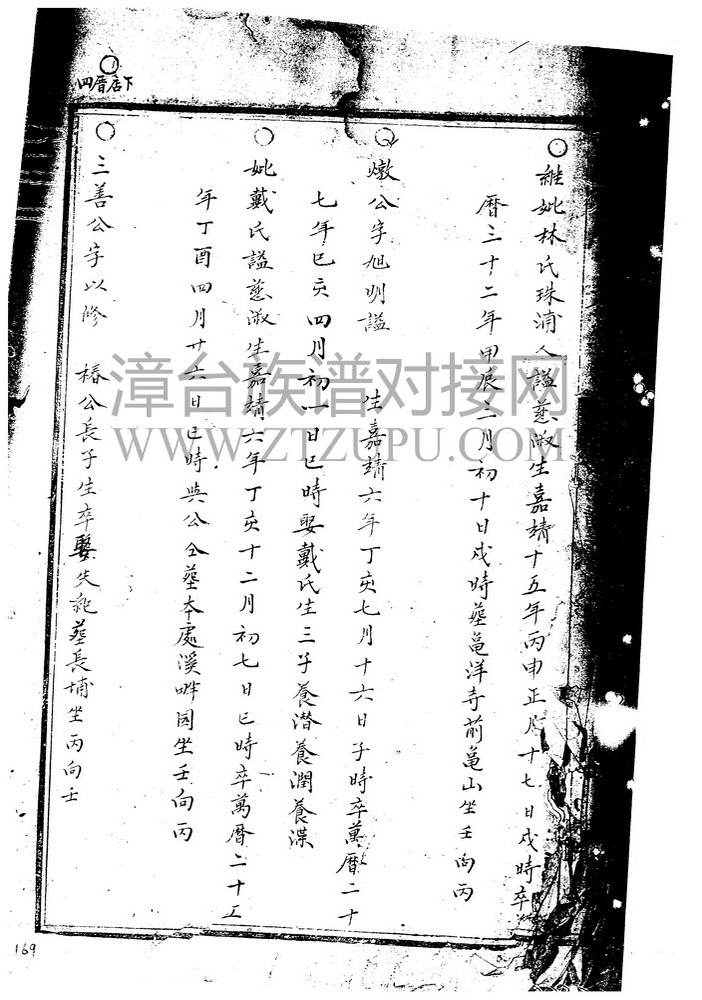 繼妣林氏珠浦人謚慈淑生嘉靖十五年丙申正月十七日戌時卒
曆三十二年甲辰二月初十日戌時葬龜洋寺前龜山坐壬向丙
燉公字旭明謚 生嘉靖六年丁亥七月十六日子時卒萬曆二十
七年巳亥四月初一日巳時娶戴氏生三子養潜養潤養渫
妣戴氏謚慈淑生嘉靖六年丁亥十二月初七日巳時卒萬曆二十五
年丁酉四月廿六日巳時與公仝葬本處溪畔园坐壬向丙
三善公字以修 椿公長子生卒娶失紀葬長埔坐丙向壬
四厝店下
漳台族谱对接网
WWW.ZTZUPU.COM
169